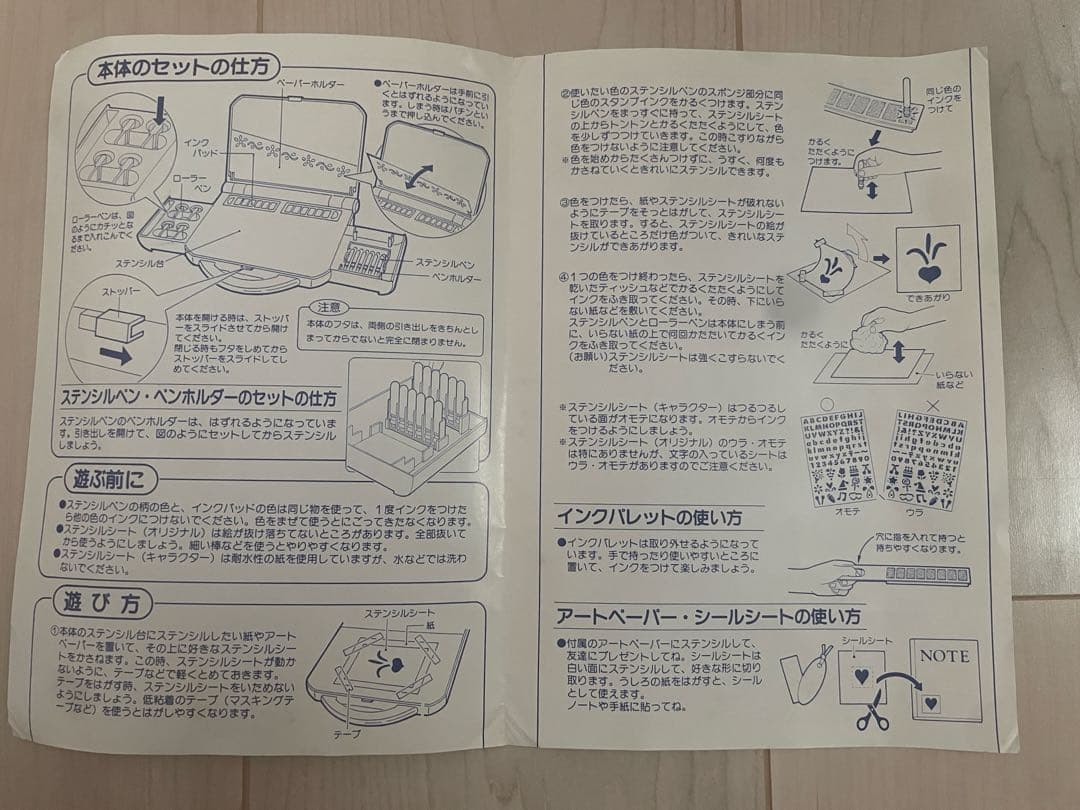 本体のセットの仕方
ペーパーホルダー
●ペーパーホルダーは手前に引
くとはずれるようになってい
ます。しまう時はパチンとい
うまで押し込んでください。
インク
パッド
ローラー
ペン
ローラーペンは、図
のようにカチッとな
るまで入れこんでく
ださい。
ステンシル台
ステンシルペン
ペンホルダー
ストッパー
本体を開ける時は、ストッパ
ーをスライドさせてから開け
てください。
閉じる時もフタをしめてから
ストッパーをスライドしてし
めてください。
注意
本体のフタは、両側の引き出しをきちんとし
まってからでないと完全に閉まりません。
ステンシルペン・ペンホルダーのセットの仕方
ステンシルペンのペンホルダーは、はずれるようになっていま
す。引き出しを開けて、図のようにセットしてからステンシル
しましょう。
遊ぶ前に
●ステンシルペンの柄の色と、インクパッドの色は同じ物を使って、1度インクをつけた
ら他の色のインクにつけないでください。色をまぜて使うとにごってきたなくなります。
●ステンシルシート（オリジナル）は絵が抜け落ちてないところがあります。全部抜いて
から使うようにしましょう。細い棒などを使うとやりやすくなります。
●ステンシルシート（キャラクター）は耐水性の紙を使用していますが、水などでは洗わ
ないでください。
遊び方
①本体のステンシル台にステンシルしたい紙やアート
ペーパーを置いて、その上に好きなステンシルシー
トをかさねます。この時、ステンシルシートが動か
ないように、テープなどで軽くとめておきます。
テープをはがす時、ステンシルシートをいためない
ようにしましょう。低粘着のテープ（マスキングテ
ープなど）を使うとはがしやすくなります。
ステンシルシート
紙
テープ
②使いたい色のステンシルペンのスポンジ部分に同
じ色のスタンプインクをかるくつけます。ステン
シルペンをまっすぐに持って、ステンシルシート
の上からトントンとかるくたたくようにして、色
を少しずつつけていきます。この時こすりながら
色をつけないように注意してください。
※色を始めからたくさんつけずに、うすく、何度も
かさねていくときれいにステンシルできます。
同じ色の
インクを
つけて
かるく
たたくように
つけます。
③色をつけたら、紙やステンシルシートが破れない
ようにテープをそっとはがして、ステンシルシー
トを取ります。すると、ステンシルシートの絵が
抜けているところだけ色がついて、きれいなステ
ンシルができあがります。
できあがり
④1つの色をつけ終わったら、ステンシルシートを
乾いたティッシュなどでかるくたたくようにして
インクをふき取ってください。その時、下にいら
ない紙などを敷いてください。
ステンシルペンとローラーペンは本体にしまう前
に、いらない紙の上で何回かたたいてかるくイン
クをふき取ってください。
(お願い)ステンシルシートは強くこすらないでく
ださい。
かるく
たたくように
いらない
紙など
※ステンシルシート（キャラクター）はつるつるし
ている面がオモテになります。オモテからインク
をつけるようにしましょう。
※ステンシルシート（オリジナル）のウラ・オモテ
は特にありませんが、文字の入っているシートは
ウラ・オモテがありますのでご注意ください。
○
×
ABCDEFGHIJ
KLMNOPQRST
UVWXYZ?!&
abcdefghij
klmnopqrst
uvwxyz
1234567890
オモテ
ウラ
インクパレットの使い方
●インクパレットは取り外せるようになって
います。手で持ったり使いやすいところに
置いて、インクをつけて楽しみましょう。
穴に指を入れて持つと
持ちやすくなります。
アートペーパー・シールシートの使い方
●付属のアートペーパーにステンシルして、
友達にプレゼントしてね。シールシートは
白い面にステンシルして、好きな形に切り
取ります。うしろの紙をはがすと、シール
として使えます。
ノートや手紙に貼ってね。
シールシート
NOTE